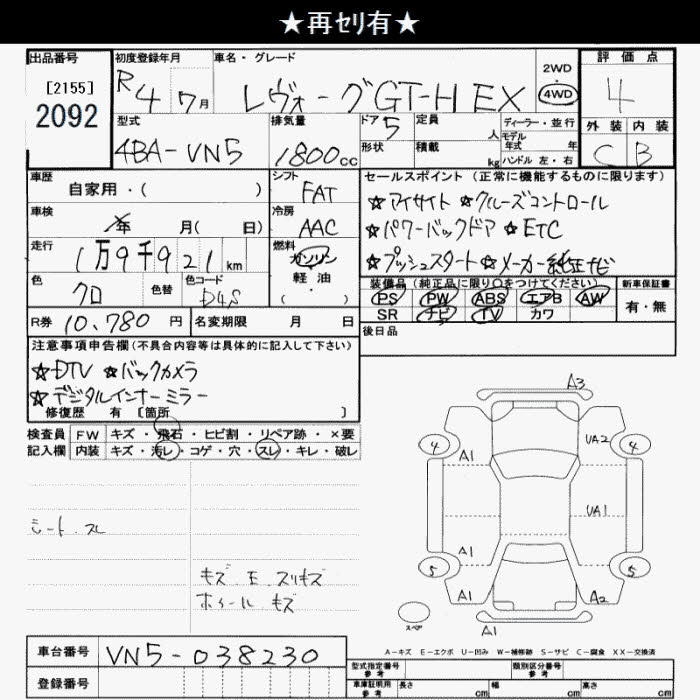 ★再ｾﾘ有★
出品番号 初度登録年月 車名・グレード 2WD 4WD 評価点
[2155] 2092 R4 7月 レヴォーグGT-H EX 4
外装 内装
C B
型式 排気量 ドア 5 定員 人 ディーラー・並行
4BA-VN5 1800cc 形状 積載 kg モデル年式 年
ハンドル 左・右
車歴 シフト セールスポイント (正常に機能するものに限ります)
自家用・( ) FAT ☆アイサイト ☆クルーズコントロール
車検 年 月( 日) 冷房 AAC ☆パワーバックドア ☆ETC
走行 1万9千921km 燃料 ガソリン 軽油・( ) ☆プッシュスタート☆メーカー純正ナビ
色 クロ 色替 色コード D4S 装備品 (純正品に限り○をつけてください) 新車保証書
PS PW ABS エアB AW 有・無
SR ナビ TV カワ
R券 10,780 円 名変期限 月 日 後日品
注意事項申告欄(不具合内容等は具体的に記入して下さい)
☆DTV ☆バックカメラ
☆デジタルインナーミラー
修復歴 有 [箇所 ]
検査員 FW キズ・飛石・ヒビ割・リペア跡・×要
記入欄 内装 キズ・汚レ・コゲ・穴・スレ・キレ・破レ
シート スレ
キズ E スリキズ
ホイール キズ
A3
4 A1 UA2 4
UA1
A1
5 A1 A2 5
スペア A1
A-キズ E-エクボ U-凹み W-補修跡 S-サビ C-腐食 XX-交換済
車台番号 VN5-038230
登録番号
型式指定番号 参考 類別区分番号 参考
車庫証明用 参考 長さ cm 幅 cm 高さ cm